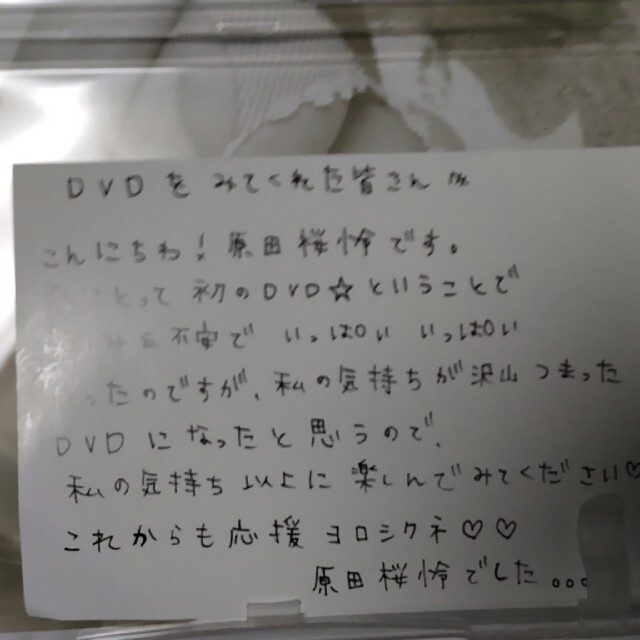 DVDをみてくれた皆さんへ
こんにちわ!原田桜怜です。
にとって初のDVD☆ということで
不安でいっぱいいっぱい
ったのですが、私の気持ちが沢山つまった
DVDになったと思うので、
私の気持ち以上に楽しんでみてください♡
これからも応援ヨロシクネ♡♡
原田桜怜でした。。。